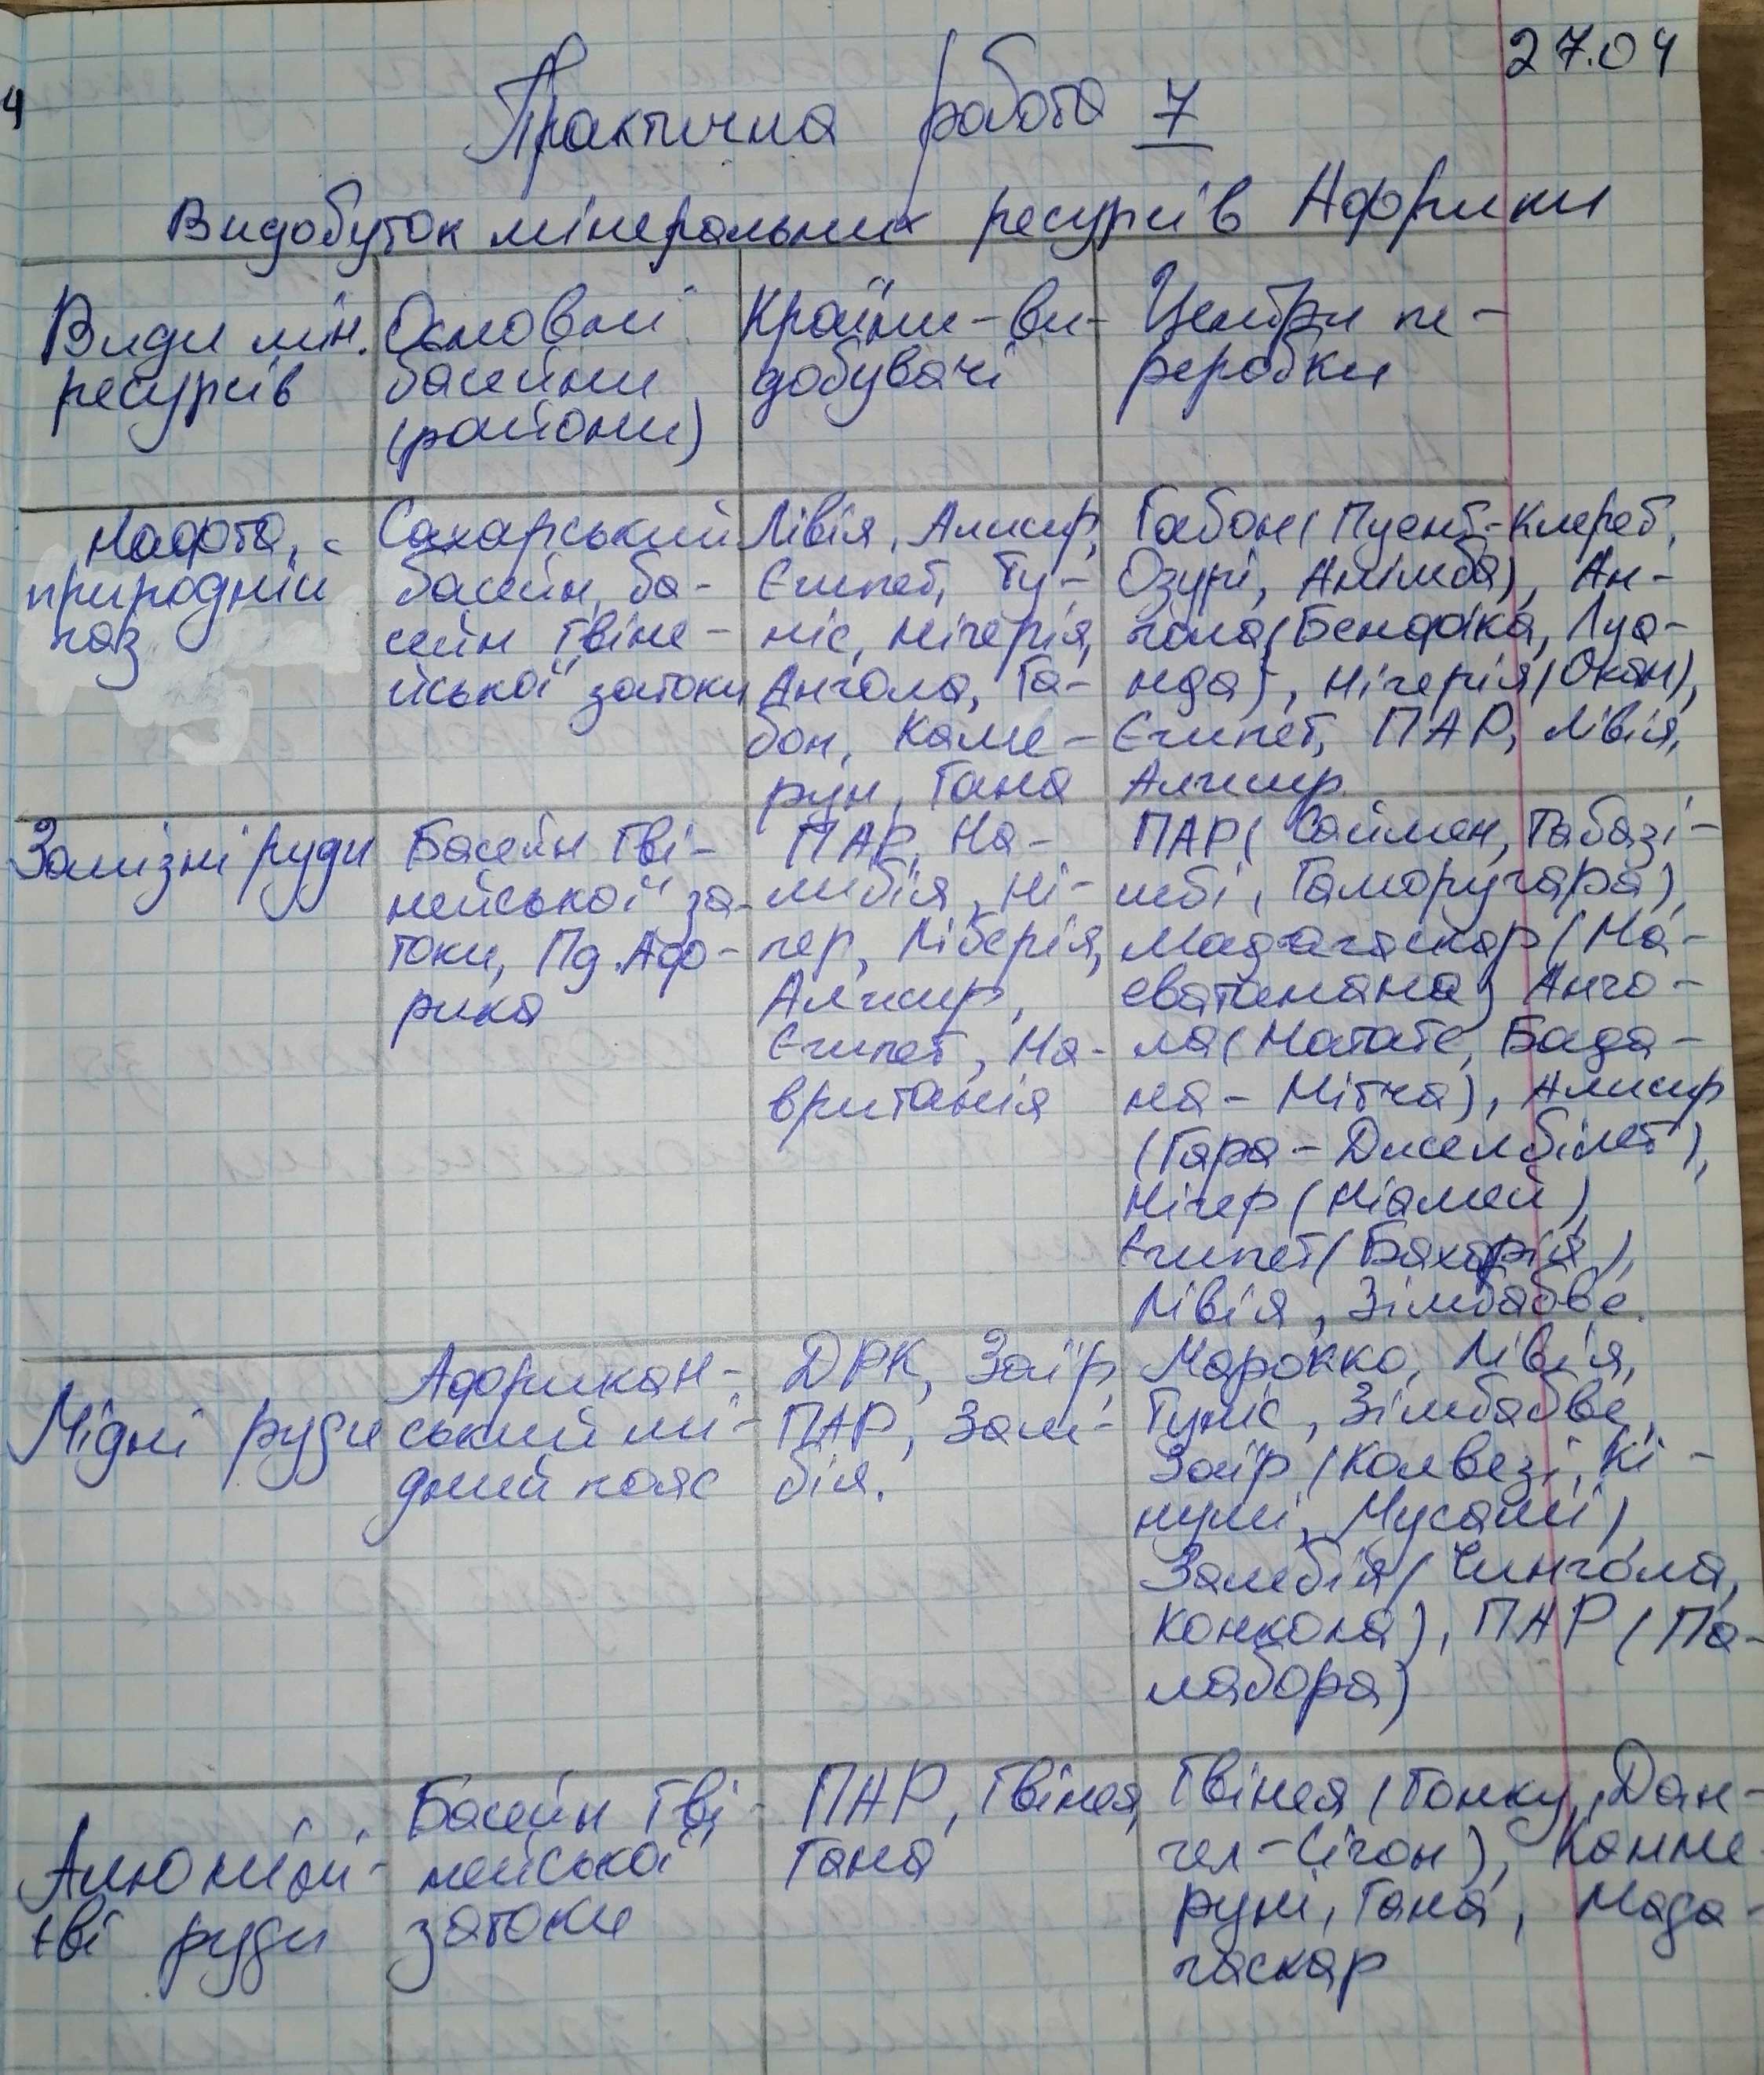 27.04
Практична робота 7
Видобуток мінеральних ресурсів Африки
Види мін.
ресурсів
Основні
басейни
(райони)
Країни-ви-
добувачі
Центри пе-
реробки
Нафта,
природній
газ
Сахарський
басейн, ба-
сейн Гвіне-
йської затоки
Лівія, Алжир,
Єгипет, Ту-
ніс, Нігерія,
Ангола, Га-
бон, Каме-
рун, Гана
Габон (Пуент-Клерет,
Озурі, Анімба), Ан-
гола (Бенфіка, Луа-
нда), Нігерія (Окан),
Єгипет, ПАР, Лівія,
Алжир
Залізні руди
Басейн Гві-
нейської за-
токи, Пд. Аф-
рика
ПАР, На-
мибія, Ні-
гер, Ліберія,
Алжир,
Єгипет, Ма-
вританія
ПАР (Саймен, Табазі-
мбі, Гаморугара),
Мадагаскар (Ма-
еватанана) Анго-
ла (Матоте, Бада-
на-Мітча), Алжир
(Гара-Джелбілет),
Нігер (Ніамей),
Єгипет (Бахарія),
Лівія, Зімбабве.
Мідні руди
Африкан-
ський мі-
дний пояс
ДРК, Заїр,
ПАР, Зам-
бія.
Марокко, Лівія,
Туніс, Зімбабве,
Заїр (Колвезі, Кі-
нуші, Мусоші),
Замбія (Чингола,
Конкола), ПАР (Па-
лабора)
Алюміні-
єві руди
Басейн Гві-
нейської
затоки
ПАР, Гвінея,
Гана
Гвінея (Тонку, Дан-
гел-Сігон), Камме-
руні, Гана, Мада-
гаскар